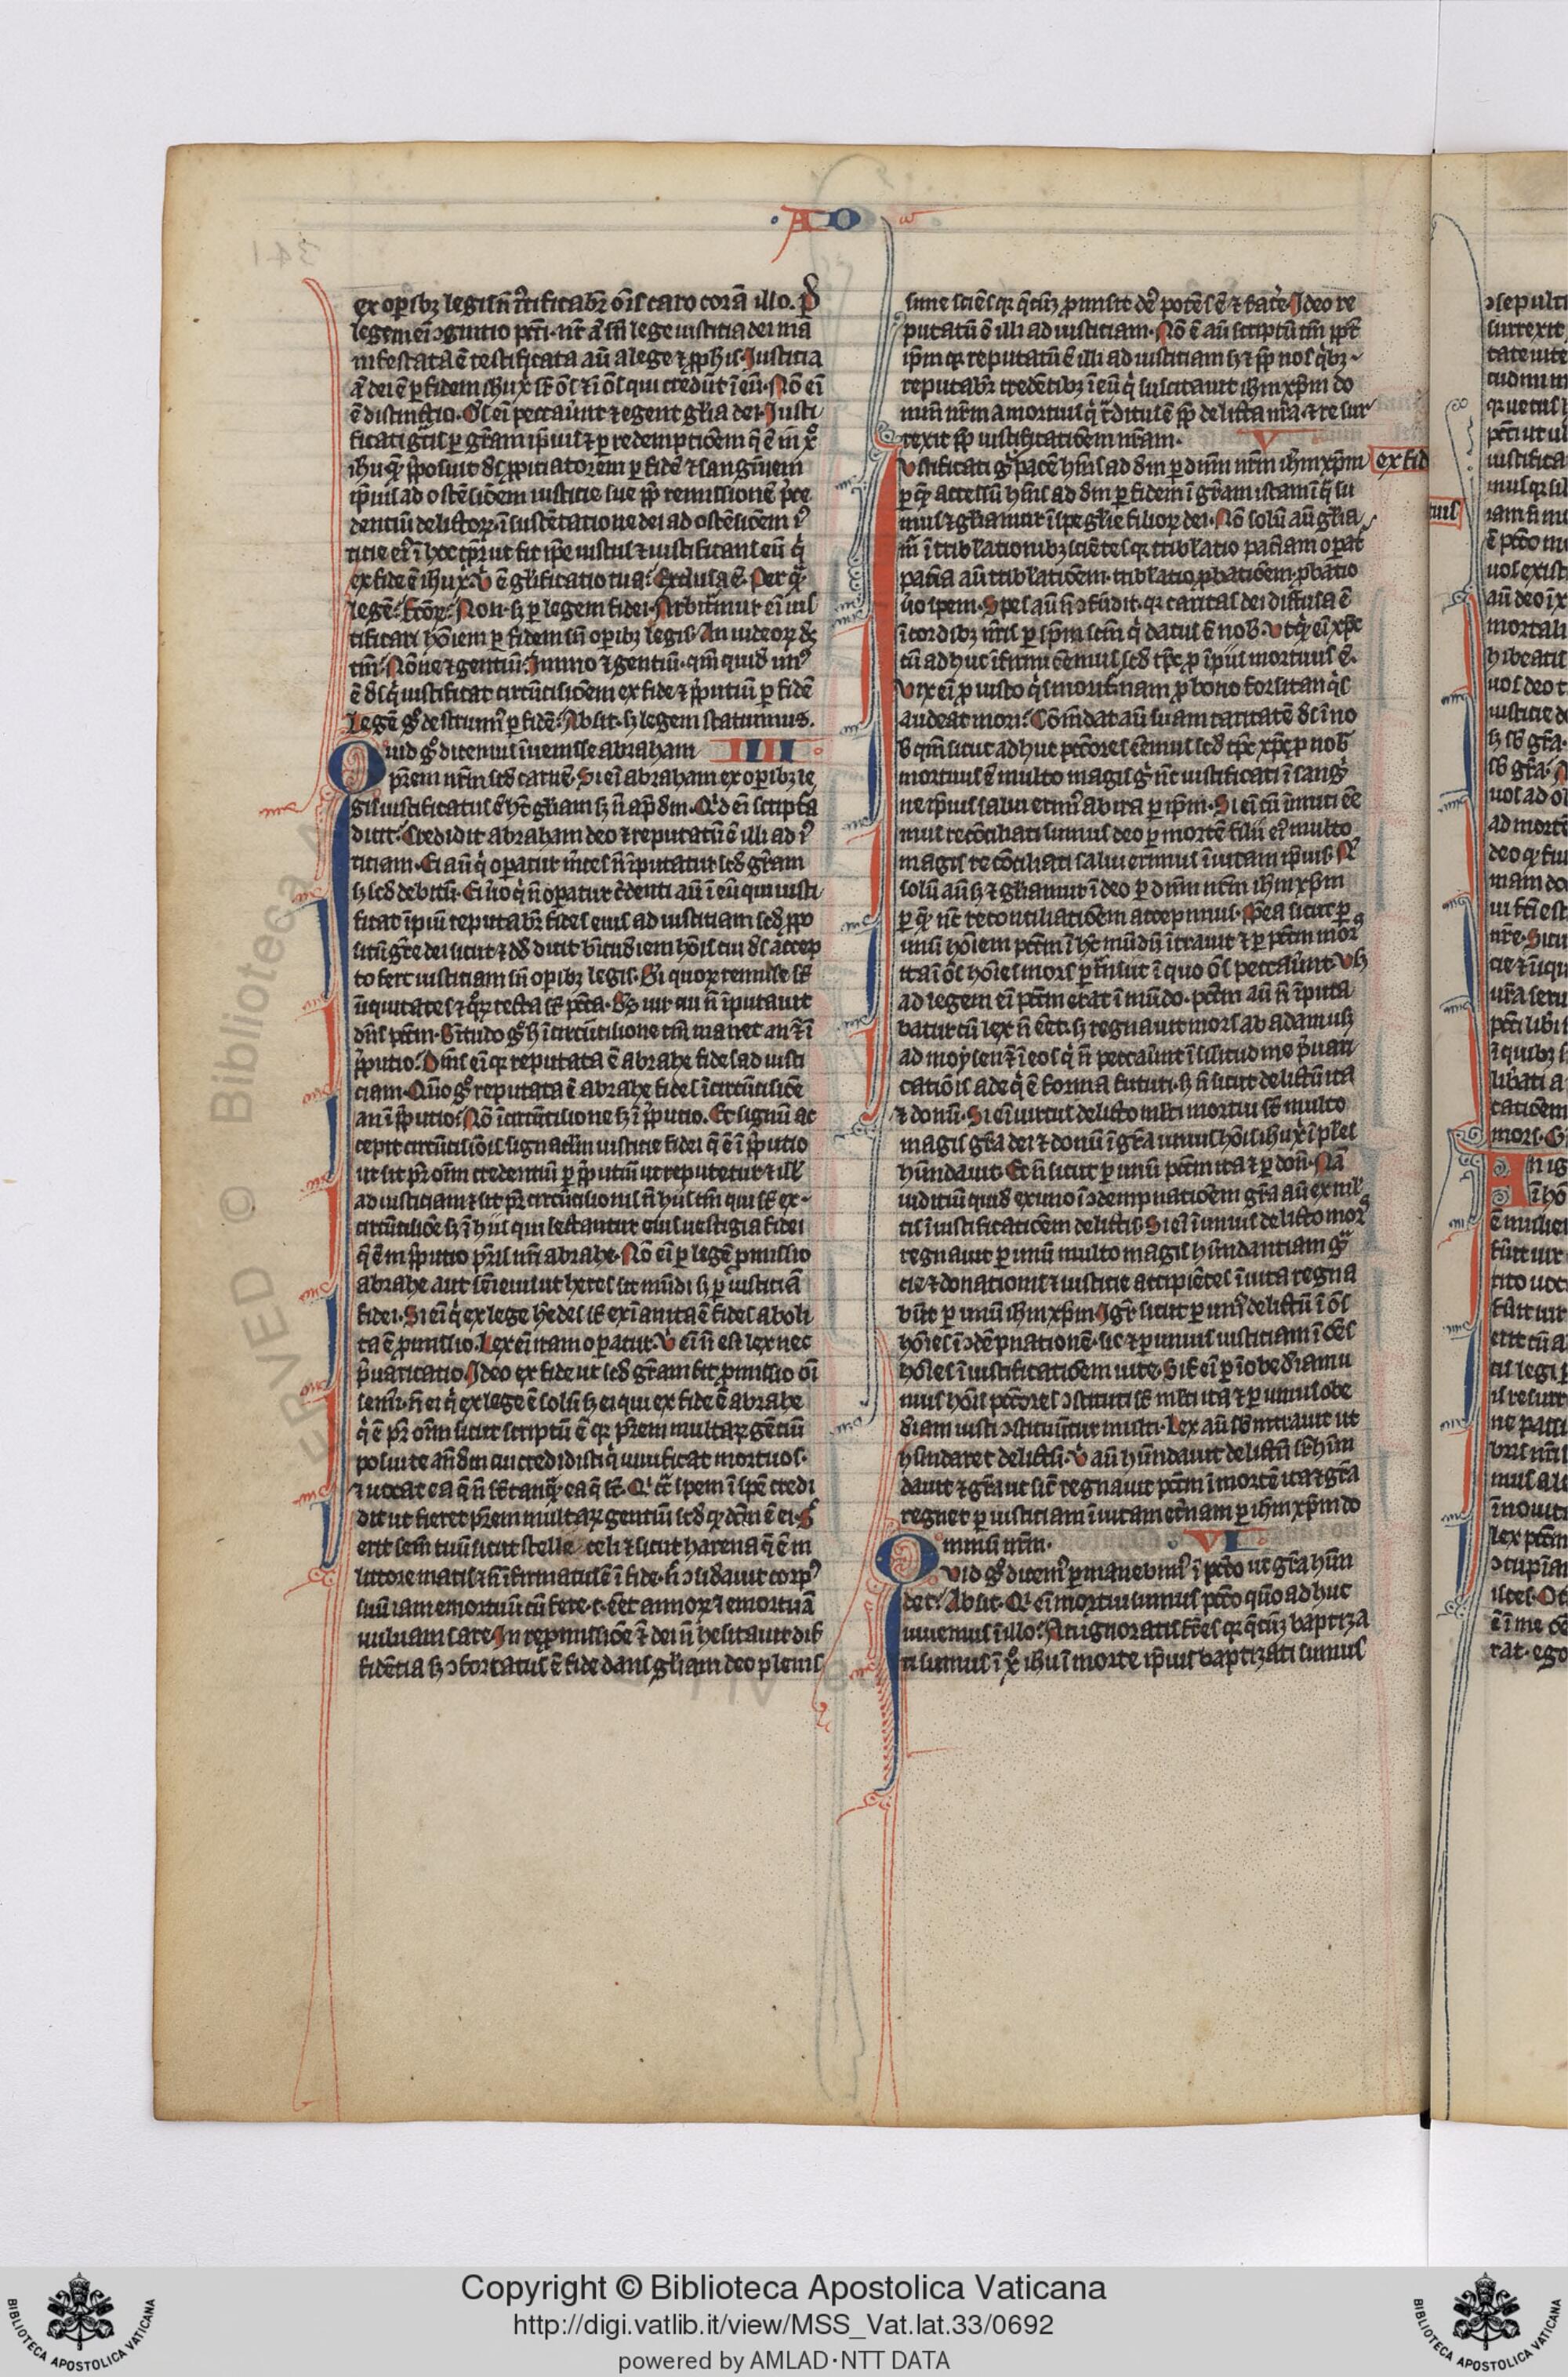 AD
ex opibꝫ legis ñ iustificabr̃ oĩs caro corã illo. ꝑ
legem eĩ ꝯgnitio pcc̃i. nũc ã sñ lege iusticia dei ma
nifestata ẽ testificata aũ a lege ⁊ ꝓphis. Iusticia
ã dei ẽ ꝑ fidem ihũ xp̃i sr̃ oẽs ⁊ ĩ oẽs qui credũt ĩ eũ. Nõ eĩ
ẽ distinctio. Oẽs eĩ peccaũnt ⁊ egent glĩa dei. Iusti
ficati gr̃is ꝑ gr̃am ip̃ius ꝑ redemptiõem q̃ ẽ in xp̃o
ihũ q̃ ꝓposuit ds̃ ꝓpiciatorem ꝑ fidẽ ĩ sanguinem
ip̃ius ad ostẽsiõem iusticie sue ꝓpt̃ remissionẽ p̃ce
dentiũ delictoꝝ. ĩ sustẽtatione dei ad ostẽsiõem i9
ticie ei9 ĩ hoc tp̃r ut sit ip̃e iustus ⁊ iustificans eũ q̃
ex fide ẽ ihũ x. Ṽ ẽ gl̃ificatio tua? Exclusa ẽ. Per q̃
legẽ? fc̃oꝝ? Non. sꝫ ꝑ legem fidei. Arbitr̃mur eĩ ius
tificari hõiem ꝑ fidem sñ opibꝫ legis. An iudeoꝝ ds̃
tm̃? Nõne ⁊ gentiũ? Immo ⁊ gentiũ. qm̃ quid un9
ẽ ds̃ q̃ iustificat circũcisiõem ex fide ⁊ p̃putiũ ꝑ fidẽ
Legẽ g̃ destruim9 ꝑ fidẽ? Absit. sꝫ legem statuimus.
Quid g̃ dicemus ĩuenisse abraham IIII
pr̃em nr̃m scd̃ carnẽ. Si eĩ abraham ex opibꝫ le
gis iustificatus ẽ hꝫ glĩam sꝫ ñ ap̃ dm̃. Q̃d eĩ scriptã
dicit? Credidit abraham deo ⁊ reputatũ ẽ illi ad i9
ticiam. Ei aũ q̃ opatur m̃ces ñ ĩputatur scd̃ gr̃am
sꝫ scd̃ debitũ. Ei ũo q̃ ñ opatur c̃denti aũ ĩ eũ qui iusti
ficat ĩpiũ reputabr̃ fides eius ad iusticiam scd̃ ꝓpo
situ gr̃e dei sicut ⁊ dd̃ dicit b̃titudiem hõis cui ds̃ accep
to fert iusticiam sñ opibꝫ legis. Bĩ quoꝝ remisse st̃
iniquitates ⁊ q̃ꝝ tecta st̃ pcc̃a. Bs̃ uir cui ñ ĩputauit
dñs pcc̃m. B̃titudo g̃ h̃ ĩ circũcisione tm̃ manet an ⁊ ĩ
p̃putio? Dim9 eĩ qꝛ reputata ẽ abrahe fides ad iusti
ciam. Quõ g̃ reputata ẽ abrahe fides ĩ circũcisiõe
an ĩ p̃putio? Nõ ĩ circũcisione sꝫ ĩ p̃putio. Et signũ ac
cepit circũcisiõis signaclm̃ iusticie fidei q̃ ẽ ĩ p̃putio
ut sit pr̃ oĩm credentiũ ꝑ p̃putiũ ut reputetur ⁊ ill̃
ad iusticiam ⁊ sit pr̃ circũcisionis ñ hiis tm̃ qui st̃ ex
circũcisiõe sꝫ ĩ hiis qui sectantur eius uestigia fidei
q̃ ẽ in p̃putio pr̃is nr̃i abrahe. Nõ eĩ ꝑ legẽ ꝓmissio
abrahe aut sẽi eius ut heres sit mũdi sꝫ ꝑ iusticiã
fidei. Si eĩ q̃ ex lege h̃edes st̃ exĩanita ẽ fides aboli
ta ẽ ꝓmissio. Lex eĩ iram opatur. Ṽ eĩ ñ est lex nec
p̃uaricatio. Ideo ex fide ut scd̃ gr̃am fir̃ ꝓmissio oĩ
semĩ. ñ ei q̃ ex lege ẽ solũ sꝫ ei qui ex fide ẽ abrahe
q̃ ẽ pr̃ oĩm sicut scriptũ ẽ qꝛ pr̃em multaꝝ gẽciũ
posui te añ dm̃ cui credidisti q̃ uiuificat mortuos.
⁊ uocat ea q̃ ñ st̃ tanq̃ ea q̃ st̃. Q̃ cõt̃ spem ĩ spẽ credi
dit ut fieret pr̃em multaꝝ gentiũ scd̃ qd̃ dc̃m ẽ ei. Sic
erit semẽ tuũ sicut stelle celi ⁊ sicut harena q̃ ẽ in
littore maris ⁊ ñ ĩfirmatus ẽ ĩ fide. ñ ꝯsiderauit corp9
suũ iam emortuũ cũ fere .c. eẽt annoꝝ ⁊ emortuã
uuluam sare. In repmissiõe ẽ dei ñ hesitauit dif
fidẽtia sꝫ ꝯfortatus ẽ fide dans glĩam deo plenis
sime sciẽs qꝛ q̃cũꝫ ꝓmisit de9 potẽs ẽ ⁊ facẽ. Ideo re
putatũ ẽ illi ad iusticiam. Nõ ẽ aũ scriptũ tm̃ ꝓpt̃
ip̃m qꝛ reputatũ ẽ illi ad iusticiam sꝫ ⁊ ꝓpt̃ nos q̃bꝫ
reputabr̃ credẽtibꝫ ĩ eũ q̃ suscitauit ihm̃ xp̃m do
minũ nr̃m a mortuis q̃ t̃ditus ẽ ꝓpt̃ delicta nr̃a. ⁊ resur
rexit ꝓpt̃ iustificatiõem nr̃am. V
Iustificati g̃ pacẽ hẽm9 ad dm̃ ꝑ dñm nr̃m ihm̃ xp̃m ex fid
ꝑ q̃ accessũ hẽm9 ad dm̃ ꝑ fidem ĩ gr̃am istam ĩ q̃ su
mus ⁊ glĩamur ĩ spe glĩe filioꝝ dei. Nõ solũ aũ glĩa
m̃ ĩ tribl̃ationibꝫ sciẽtes qꝛ tribl̃atio paciam opat̃
pacia aũ tribl̃atiõem. tribl̃atio ꝓbatiõem. ꝓbatio
ũo spem. Spes aũ ñ ꝯfũdit. qꝛ caritas dei diffusa ẽ
ĩ cordibꝫ nr̃is ꝑ sp̃m sc̃m q̃ datus ẽ nob̃. Utq̃ eĩ xp̃c
cũ adhuc ĩfirmi eẽmus scd̃ tp̃c ꝓ ĩpiis mortuus ẽ.
Vix eĩ ꝓ iusto q̃s morit̃ nam ꝓ bono forsitan q̃s
audeat mori? Cõm̃dat aũ suam caritatẽ ds̃ ĩ no
b̃ qm̃ sicut adhuc pcc̃ores eẽmus scd̃ tp̃c xp̃c ꝓ nob̃
mortuus ẽ multo magis g̃ nũc iustificati ĩ sang̃
ne ip̃ius salui erim9 ab ira ꝑ ip̃m. Si eĩ cũ inimici eẽ
mus recõciliati sumus deo ꝑ mortẽ filii ei9 multo
magis recõciliati salui erimus ĩ uitam ip̃ius. Nõ
solũ aũ sꝫ ⁊ glĩamur ĩ deo ꝑ dñm nr̃m ihm̃ xp̃m
ꝑ q̃ nũc reconciliatiõem accepimus. Pp̃ea sicut ꝑ
unũ hõiem pcc̃m ĩ hc̃ mũdũ ĩtrauit ⁊ ꝑ pcc̃m mors
ita ĩ oẽs hoĩes mors ꝑtr̃nsiit ĩ quo oẽs peccaũnt. Usꝫ
ad legem eĩ pcc̃m erat ĩ mũdo. pcc̃m aũ ñ ĩputa
batur cũ lex ñ eẽt. sꝫ regnauit mors ab adam usꝫ
ad moysen ⁊ ĩ eos q̃ ñ peccaũnt ĩ sil̃itudine p̃uari
catiõis ade q̃ ẽ forma futuri. sꝫ ñ sicut delictũ ita
⁊ donũ. Si eĩ unius delicto ml̃ti mortui st̃ multo
magis gr̃a dei ⁊ donũ ĩ gr̃a unius hõis ihũ xp̃i ĩ ples
hũndauit. Et ñ sicut ꝑ unũ pcc̃m ita ⁊ ꝑ donũ. Nã
iudiciũ quid̃ ex uno ĩ ꝯdempnatiõem gr̃a aũ ex ml̃
tis ĩ iustificatiõem delictis. Si eĩ ĩ unius delicto mors
regnauit ꝑ unũ multo magis hũndantiam gr̃
cie ⁊ donationis ⁊ iusticie accipiẽtes ĩ uita regna
bũt ꝑ unũ ihm̃ xp̃m. Igr̃ sicut ꝑ uni9 delictũ ĩ oẽs
hoĩes ĩ ꝯdẽpnationẽ. sic ⁊ ꝑ unius iusticiam ĩ oẽs
hoĩes ĩ iustificatiõem uite. Sic̃ eĩ ꝑ ĩobediam u
nius hõis pcc̃ores ꝯstituti st̃ ml̃ti ita ⁊ ꝑ unius obe
diam iusti ꝯstituũtur multi. Lex aũ sbĩntrauit ut
hũndaret delictũ. Ṽ aũ hũndauit delictũ sr̃hũn
dauit ⁊ gr̃a ut sic̃ regnauit pcc̃m ĩ mortẽ ita ⁊ gr̃a
regnet ꝑ iusticiam ĩ uitam et̃nam ꝑ ihm̃ xp̃m do
minũ nr̃m. VI
Quid g̃ dicem9 ꝑmanebim9 ĩ pcc̃o ut gr̃a hũn
det? Absit. Q̃ eĩ mortui sumus pcc̃o quõ adhuc
uiuemus ĩ illo? An ignoratis fr̃es qꝛ q̃cũꝫ baptiza
ti sumus ĩ xp̃o ihũ ĩ morte ip̃ius baptizati sumus
Copyright © Biblioteca Apostolica Vaticana
http://digi.vatlib.it/view/MSS_Vat.lat.33/0692
powered by AMLAD·NTT DATA
BIBLIOTECA APOSTOLICA VATICANA
BIBLIOTECA APOSTOLICA VATICANA